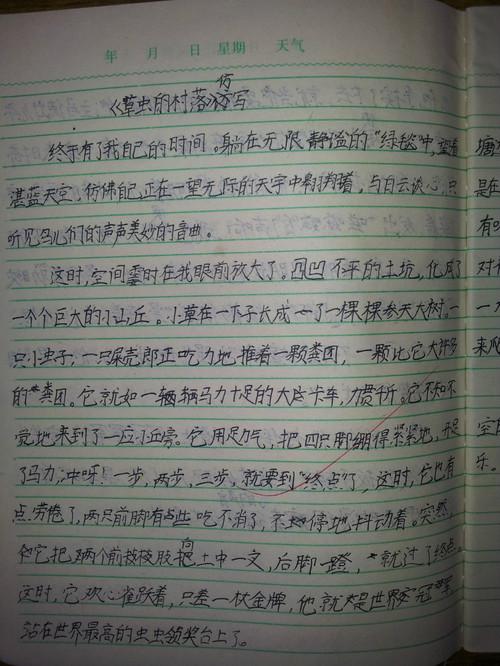 年 月 日 星期 天气
仿
《草虫的村落》仿写
终于有了我自己的时间。躺在无限静谧的“绿毯”中，望着
湛蓝天空，仿佛自己正在一望无际的天宇中翱翔着，与白云谈心，只
听见鸟儿们的声声美妙的音曲。
这时，空间霎时在我眼前放大了。凹凸不平的土坑，化成了
一个个巨大的小山丘。小草在一下子长成了一棵棵参天大树。一
只小虫子，一只屎壳郎正吃力地推着一颗粪团，一颗比它大许多
的粪团。它就如一辆辆马力十足的大皮卡车，力贯千斤。它不知不
觉地来到了一座小丘旁。它用足力气，把四只脚绷得紧紧地，开足
了马力，冲呀！一步，两步，三步，就要到“终点”了，这时，它也有
点劳倦了，两只前脚有些吃不消了，不停地抖动着。突然，
它把两个前肢向土中一叉，后脚一蹬，就过了终点。
这时，它欢心雀跃着，只差一枚金牌，他就是世界冠军，
站在世界最高的虫虫领奖台上了。
塘
是在
有
对
一
来爬
空
乐。